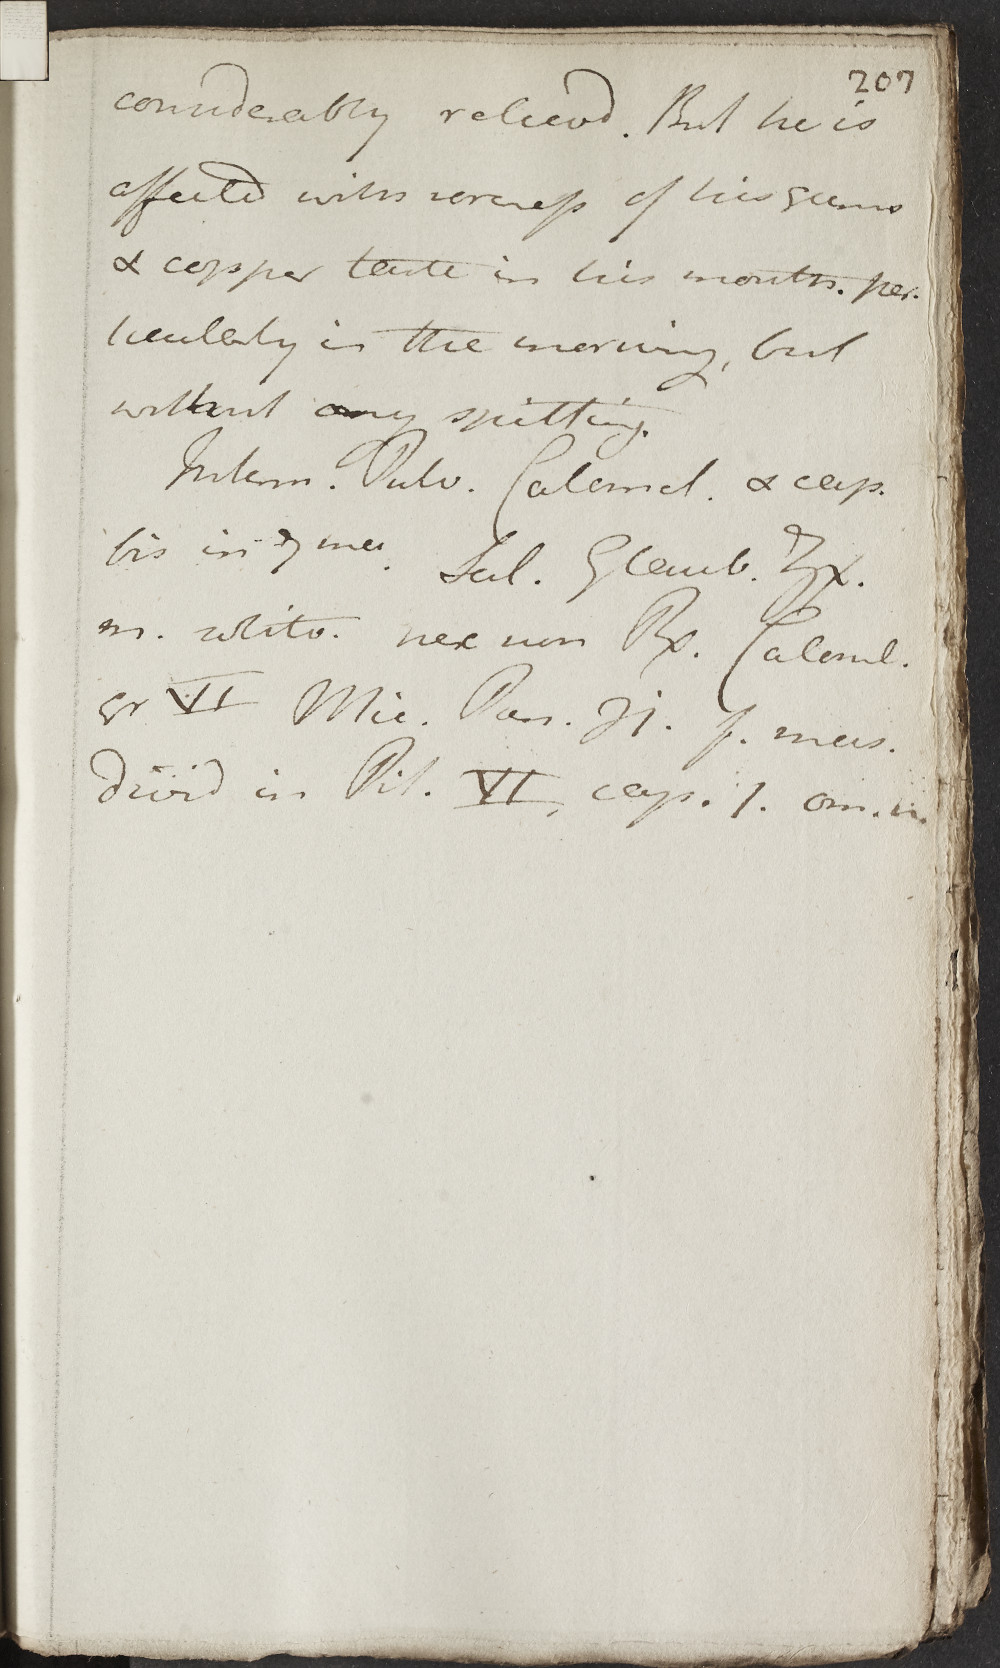 207
considerably relievd. But he is
affected with soreness of his Gums
& copper taste in his mouth. par-
ticularly in the morning, but
without any spitting.
Interm. Pulv. Calomel. & cap.
bis in 7mа. Sal. Glaub. ℥x.
m. solito. nec non Rx. Calomel.
gr VI Mic. Pan. ʒi. f. mas.
divid in Pil. VI, cap. 1. om. n.